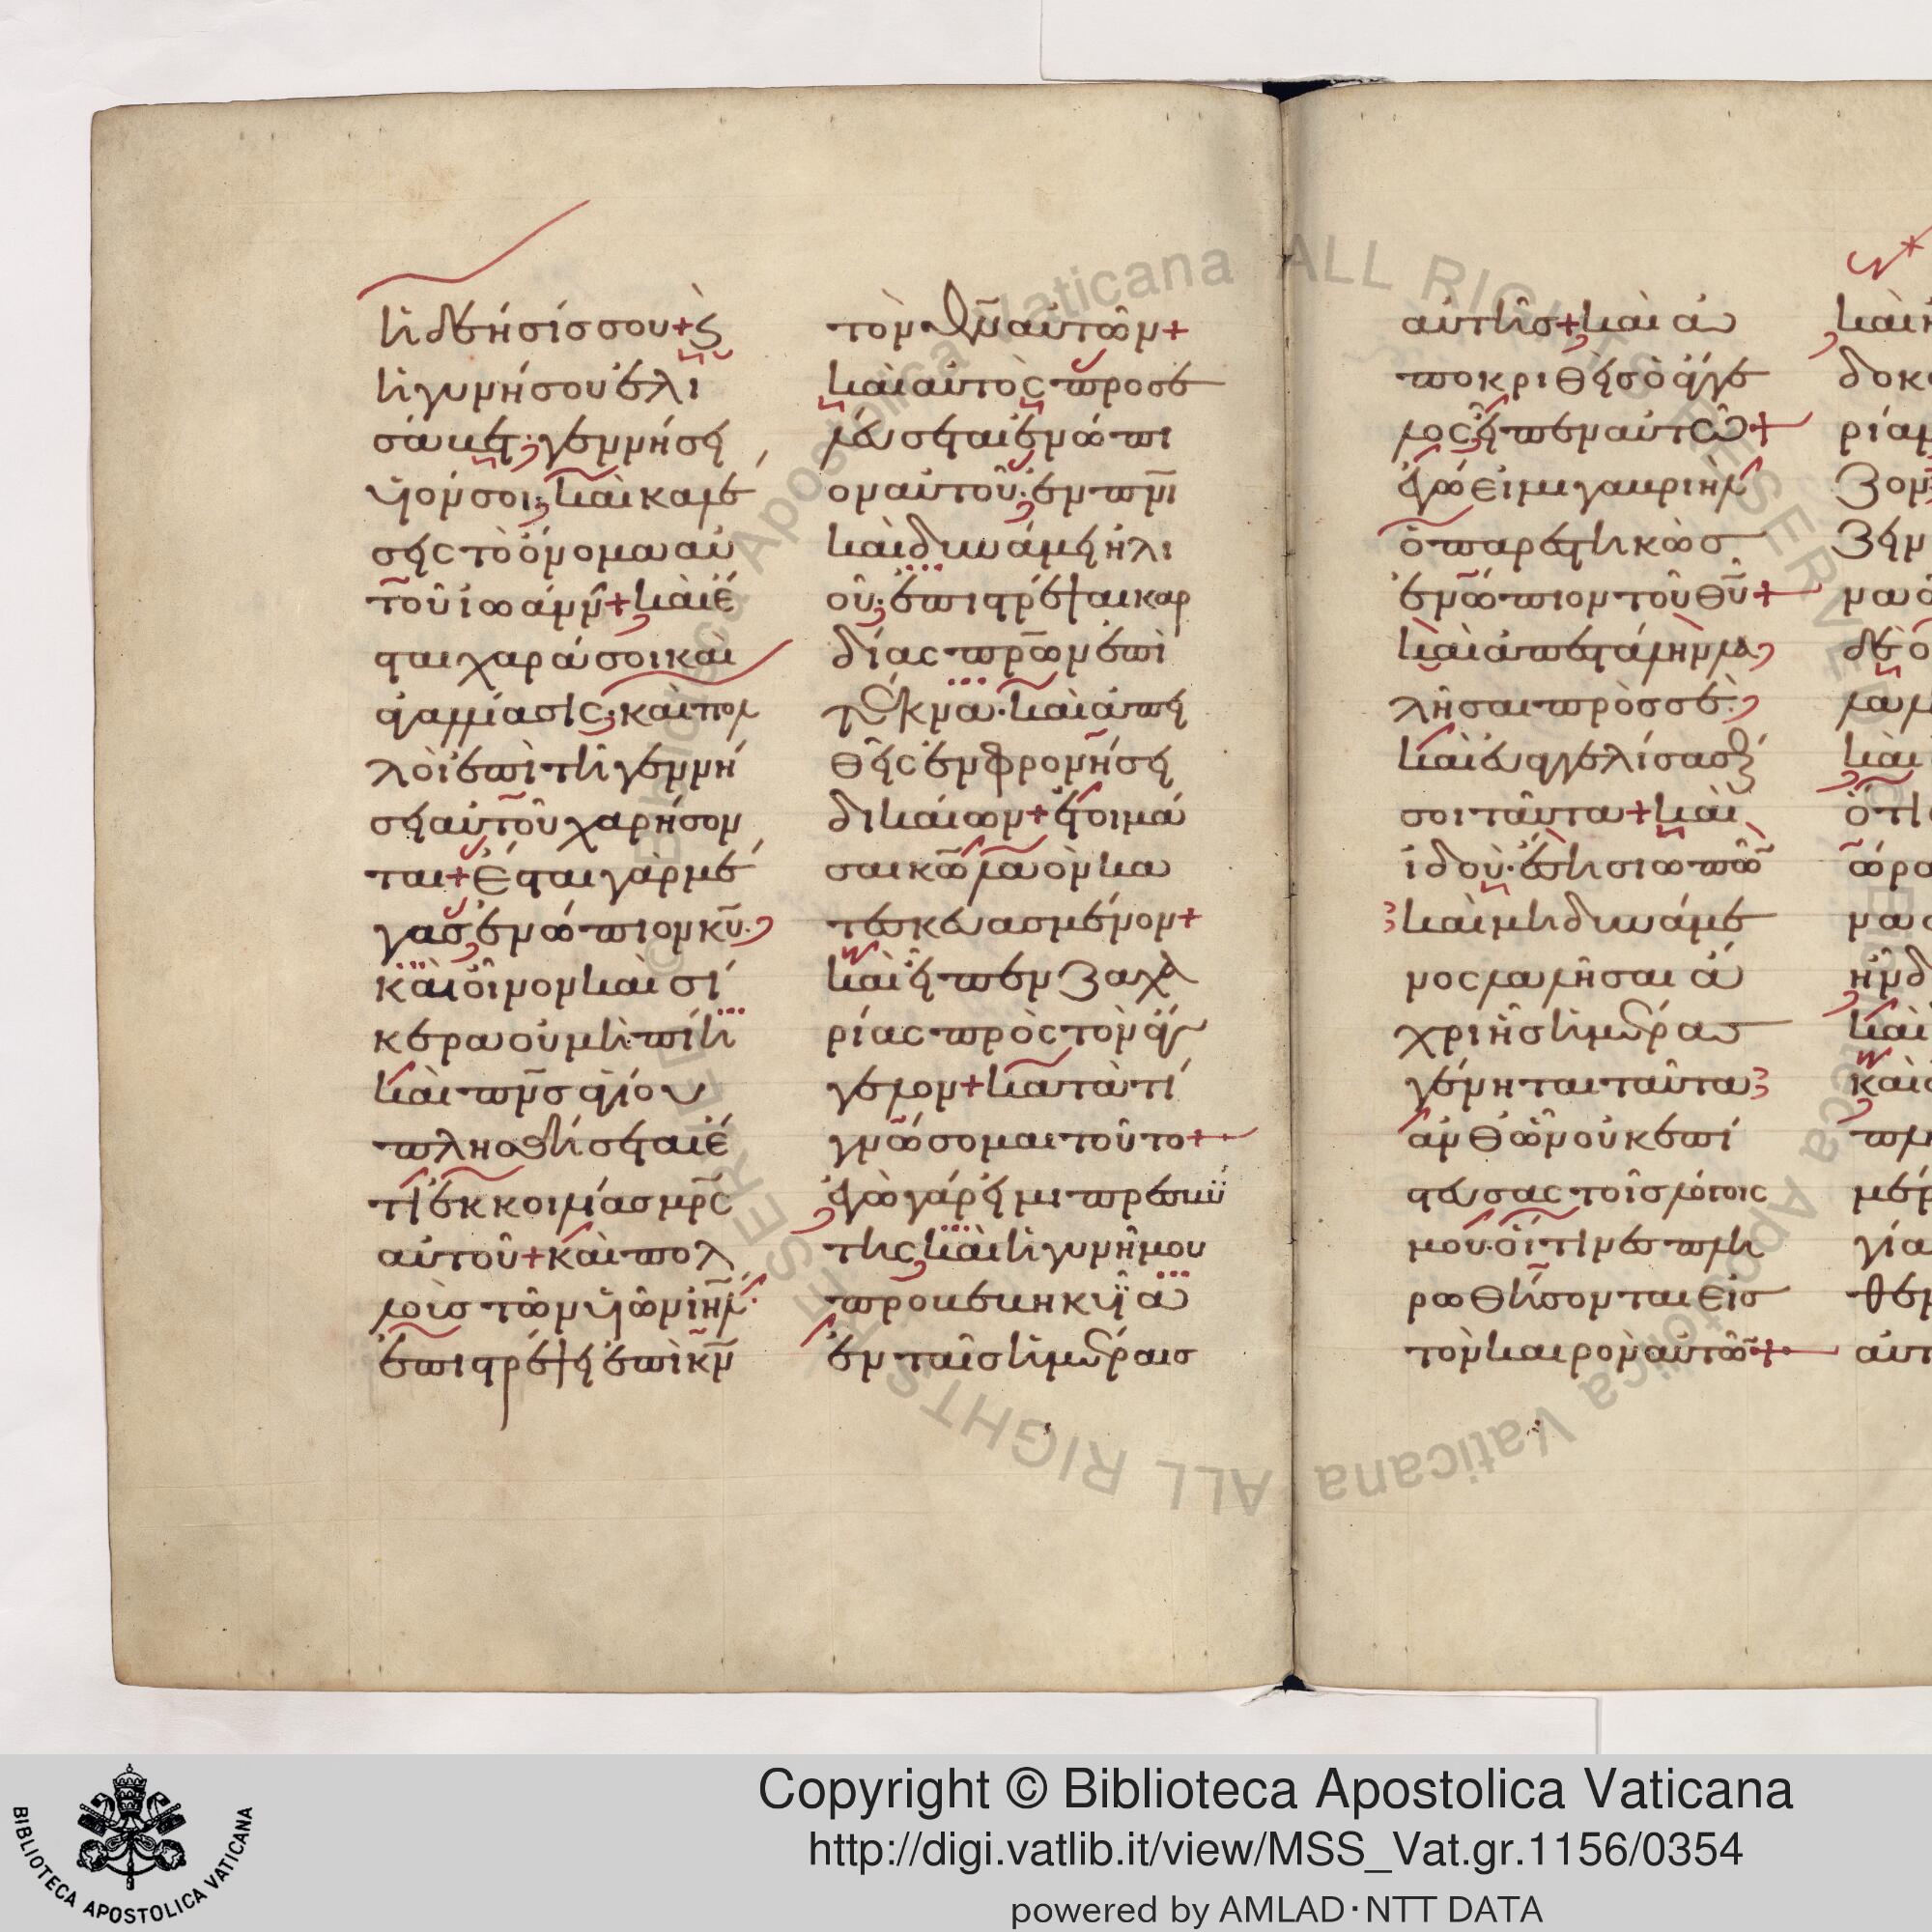 ἡ δέησίς σου + ς
ἡ γυνή σου ἐλι
σάβετ· γεννήσει
υἱόν σοι· καὶ καλέ
σεις τὸ ὄνομα αὐ
τοῦ ἰωάνν + καὶ ἔ
σται χαρά σοι καὶ
ἀγαλλίασις· καὶ πολ
λοὶ ἐπὶ τῆ γεννή
σει αὐτοῦ χαρήσον
ται + ἔσται γὰρ μέ
γας ἐνώπιον κῡ·
καὶ οἶνον καὶ σί
κερα οὐ μὴ πίη
καὶ πν̄ς ἁγίου
πλησθήσεται ἔ
τι ἐκ κοιλίας μρ̄ς
αὐτοῦ + καὶ πολ
λοὺς τῶν υἱῶν ιη̄λ·
ἐπιστρέψει ἐπὶ κν̄
τὸν θν̄ αὐτῶν +
καὶ αὐτὸς προσε
λεύσεται ἐνώπι
ον αὐτοῦ· ἐν πνῑ
καὶ δυνάμει ἡλι
οῦ· ἐπιστρέψαι καρ
δίας πρ̄ων ἐπὶ
τέκνα· καὶ ἀπει
θεῖς ἐν φρονήσει
δικαίων + ἑτοιμά
σαι κω̄ λαὸν κα
τεσκευασμένον +
καὶ εἶπεν ζαχα
ρίας πρὸς τὸν ἄγ
γελον + κατὰ τί
γνώσομαι τοῦτο +
ἐγὼ γάρ εἰμι πρεσβύ
της καὶ ἡ γυνή μου
προβεβηκυῖα
ἐν ταῖς ἡμέραις
αὐτῆς + καὶ ἀ
ποκριθεὶς ὁ ἄγγε
λος εἶπεν αὐτῶ +
ἐγώ εἰμι γαβριὴλ
ὁ παρεστηκὼς
ἐνώπιον τοῦ θῡ +
καὶ ἀπεστάλην λα
λῆσαι πρὸς σέ·
καὶ εὐαγγελίσασθαί
σοι ταῦτα + καὶ
ἰδού· ἔση σιωπῶ
καὶ μὴ δυνάμε
νος λαλῆσαι ἄ
χρι ἧς ἡμέρας
γένηται ταῦτα
ἀνθ' ὧν οὐκ ἐπί
στευσας τοῖς λόγοις
μου· οἵτινες πλη
ρωθήσονται εἰς
τὸν καιρὸν αὐτῶ +
καὶ
δοκ
ρίαν
ζον
ζειν
δὲ ὁ
καὶ
ὅτι
καὶ
γία
αὐτ
Copyright © Biblioteca Apostolica Vaticana
http://digi.vatlib.it/view/MSS_Vat.gr.1156/0354
powered by AMLAD·NTT DATA
BIBLIOTECA APOSTOLICA VATICANA
© Biblioteca Apostolica Vaticana ALL RIGHTS RESERVED